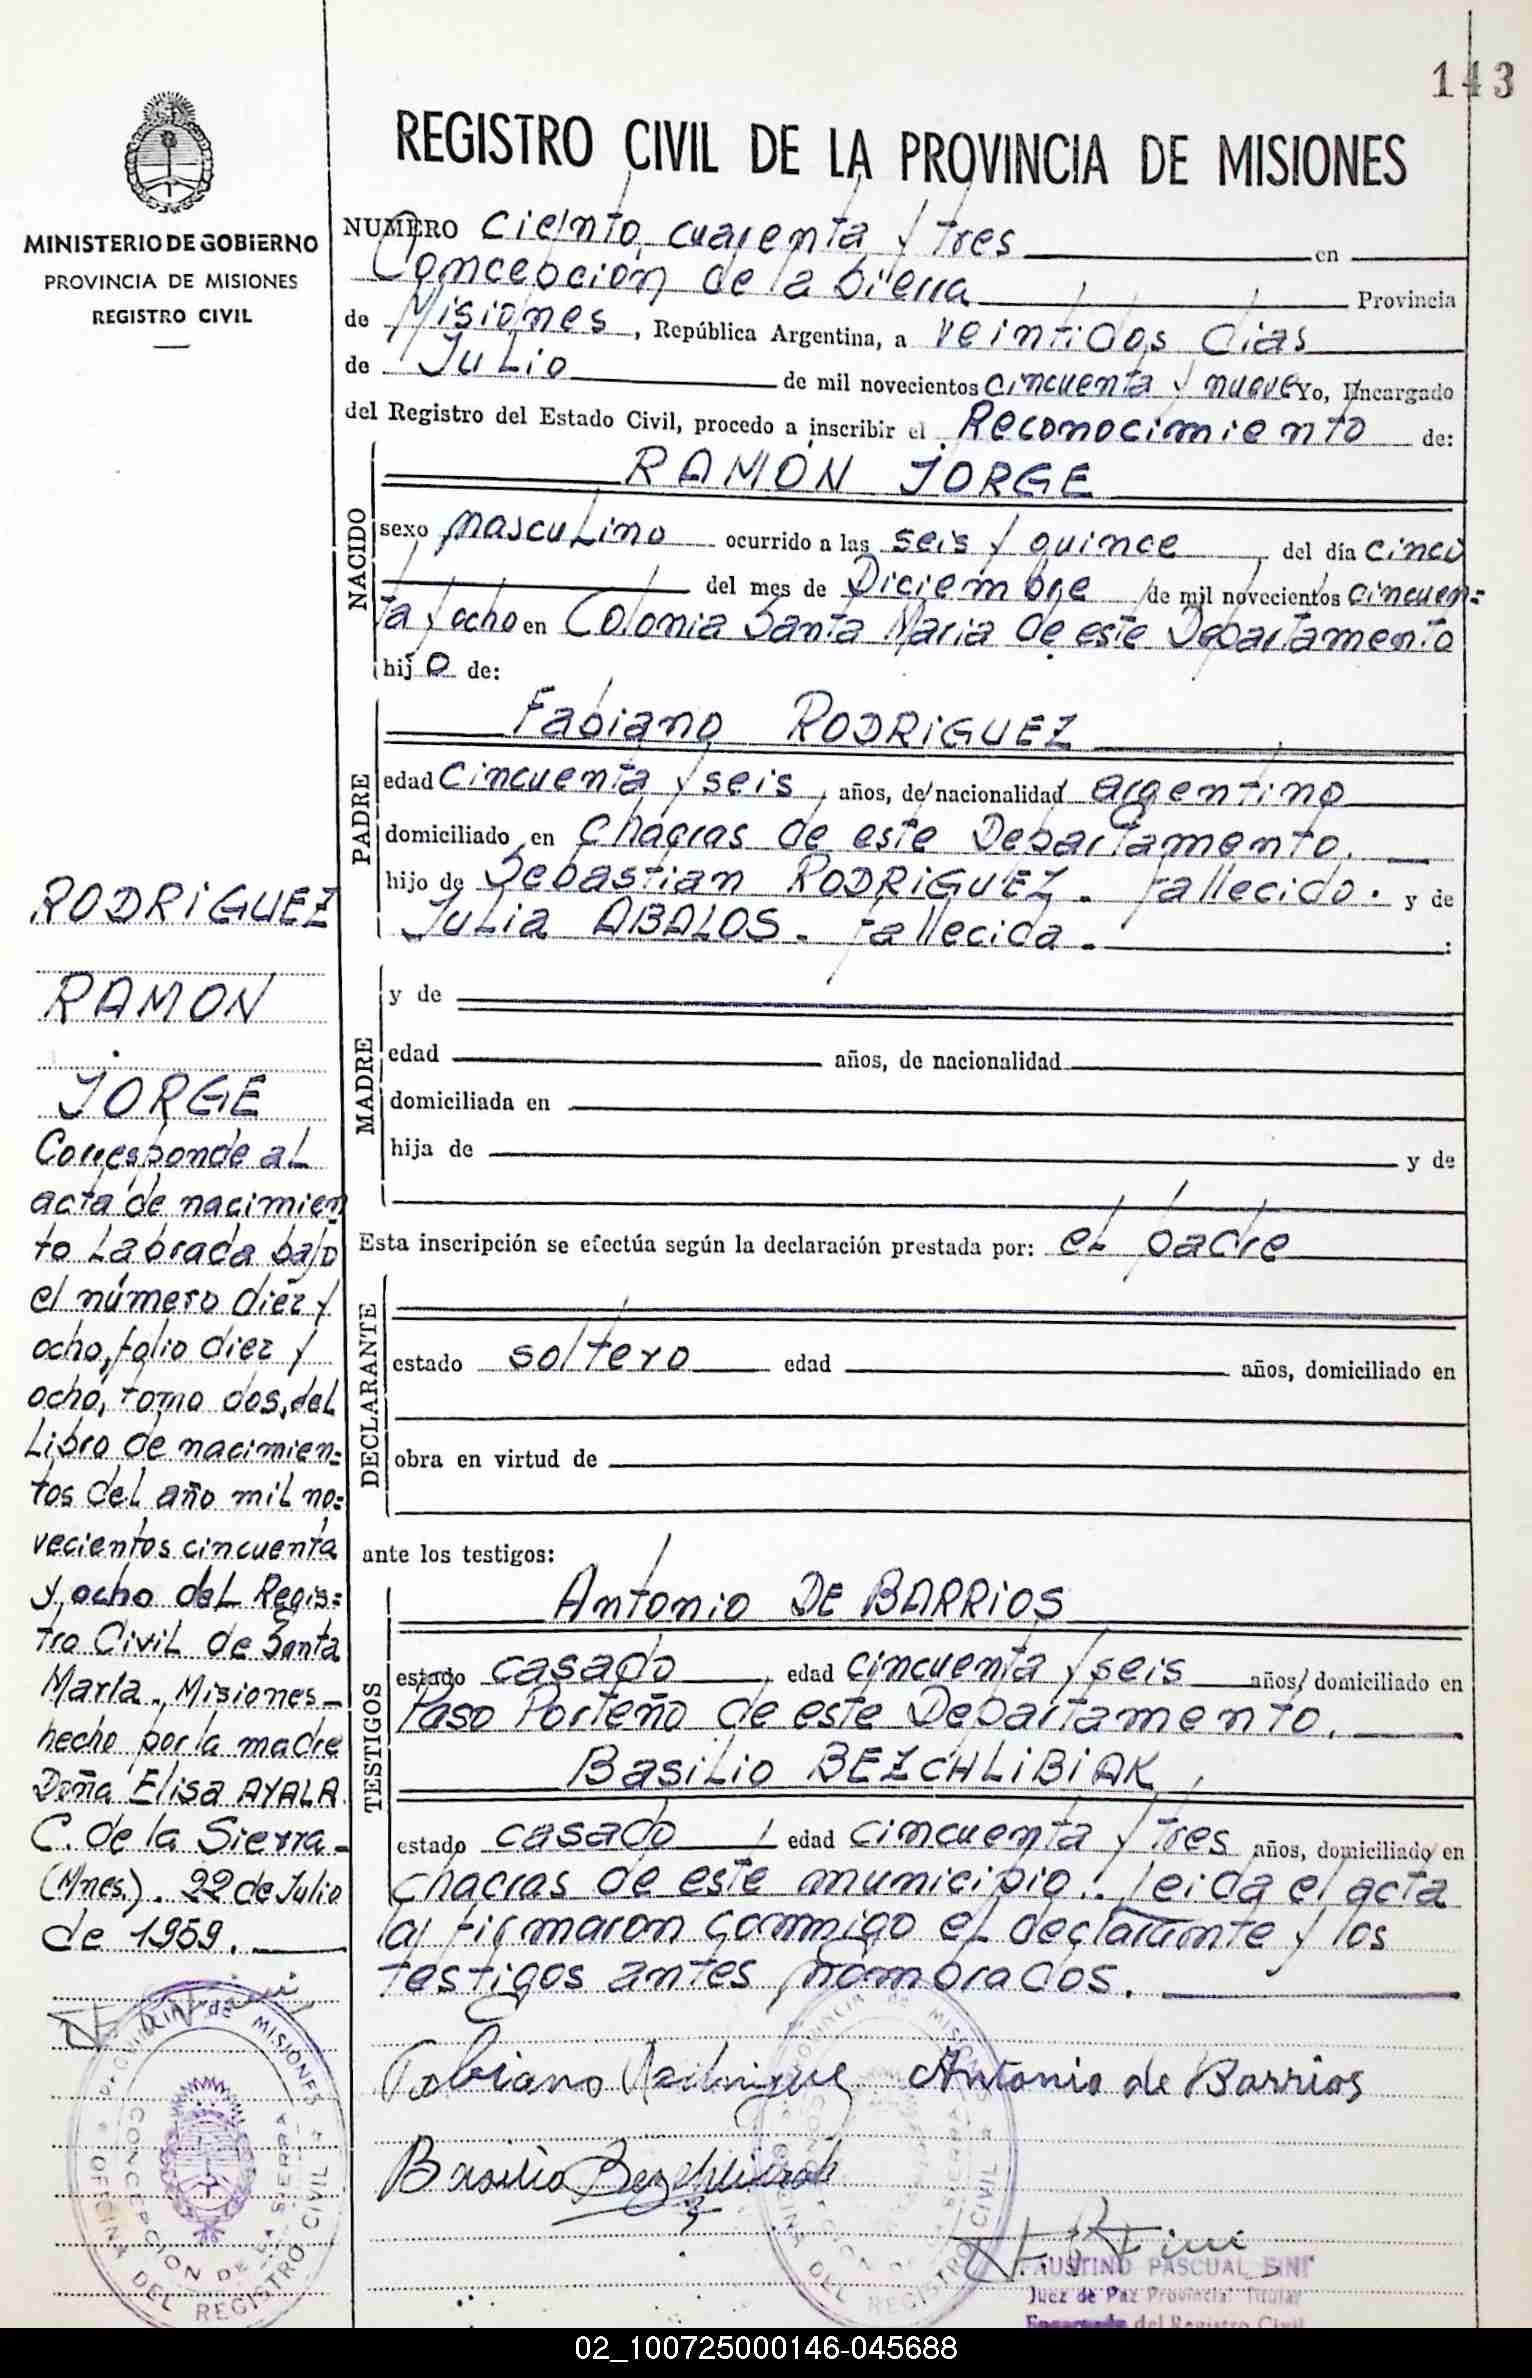 143
REGISTRO CIVIL DE LA PROVINCIA DE MISIONES
MINISTERIO DE GOBIERNO
PROVINCIA DE MISIONES
REGISTRO CIVIL
NUMERO Ciento cuarenta y tres en
Concepción de la Sierra Provincia
de Misiones, República Argentina, a veintidos dias
de Julio de mil novecientos cincuenta y nueve Yo, Encargado
del Registro del Estado Civil, procedo a inscribir el Reconocimiento de:
NACIDO
RAMÓN JORGE
sexo masculino ocurrido a las seis y quince del día cinco
del mes de Diciembre de mil novecientos cincuen=
ta y ocho en Colonia Santa Maria de este Departamento
hijo de:
PADRE
Fabiano RODRIGUEZ
edad Cincuenta y seis, años, de nacionalidad argentino
domiciliado en chacras de este Departamento.
hijo de Sebastian RODRIGUEZ. fallecido. y de
Julia ABALOS. fallecida.- :
MADRE
y de
edad años, de nacionalidad
domiciliada en
hija de y de
Esta inscripción se efectúa según la declaración prestada por: el padre
DECLARANTE
estado soltero edad años, domiciliado en
obra en virtud de
ante los testigos:
TESTIGOS
Antonio DE BARRIOS
estado casado, edad cincuenta y seis años, domiciliado en
Paso Porteño de este Departamento.
Basilio BEZCHLIBIAK
estado casado, edad cincuenta y tres años, domiciliado en
chacras de este municipio.. leida el acta
la firmaron conmigo el declarante y los
testigos antes nombrados.
RODRIGUEZ
RAMON
JORGE
Corresponde al
acta de nacimien
to Labrada bajo
el número diez y
ocho, folio diez y
ocho, tomo dos, del
Libro de nacimien=
tos del año mil no=
vecientos cincuenta
y ocho del Regis=
tro Civil de Santa
María. Misiones-
hecho por la madre
Doña Elisa AYALA
C. de la Sierra-
(Mnes.). 22 de Julio
de 1959.
PROVINCIA de MISIONES
OFICINA DEL REGISTRO CIVIL
CONCEPCION DE LA SIERRA
Fabiano Rodriguez Antonio de Barrios
Basilio Bezchlibiak
FAUSTINO PASCUAL FINI
Juez de Paz Provincial Titular
Encargado del Registro Civil
02_100725000146-045688